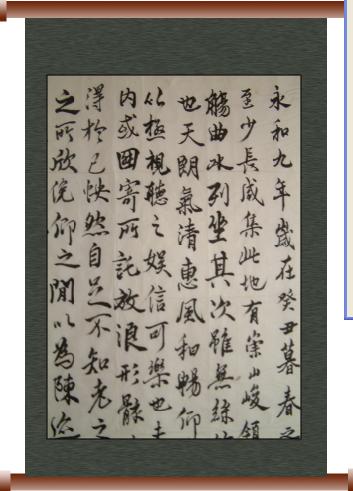 永和九年歲在癸丑暮春之
至少長咸集此地有崇山峻領
觴曲水列坐其次雖無絲
也天朗氣清惠風和暢仰
以極視聽之娛信可樂也夫
内或因寄所託放浪形骸
得於己怏然自足不知老之
之所欣俛仰之間以為陳迹